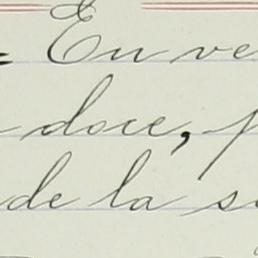 = En ve
doce, p
de la s